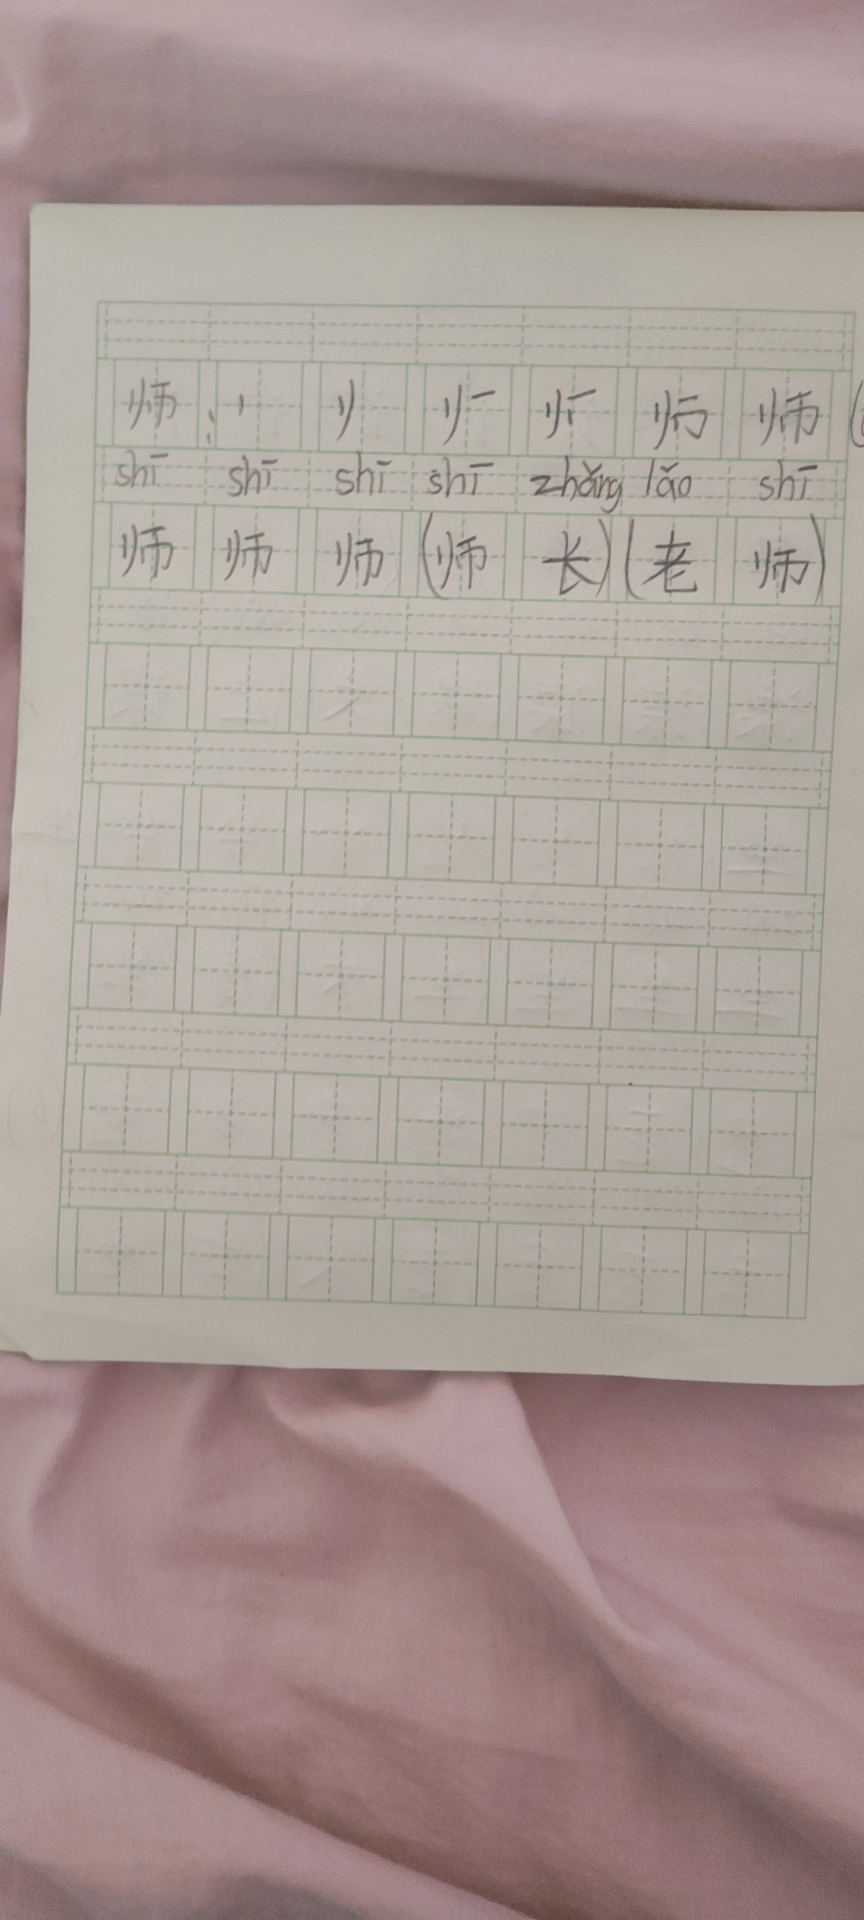 师：丨 刂 师 师
shī shī shī shī zhǎng lǎo shī
师 师 师 (师 长) (老 师)